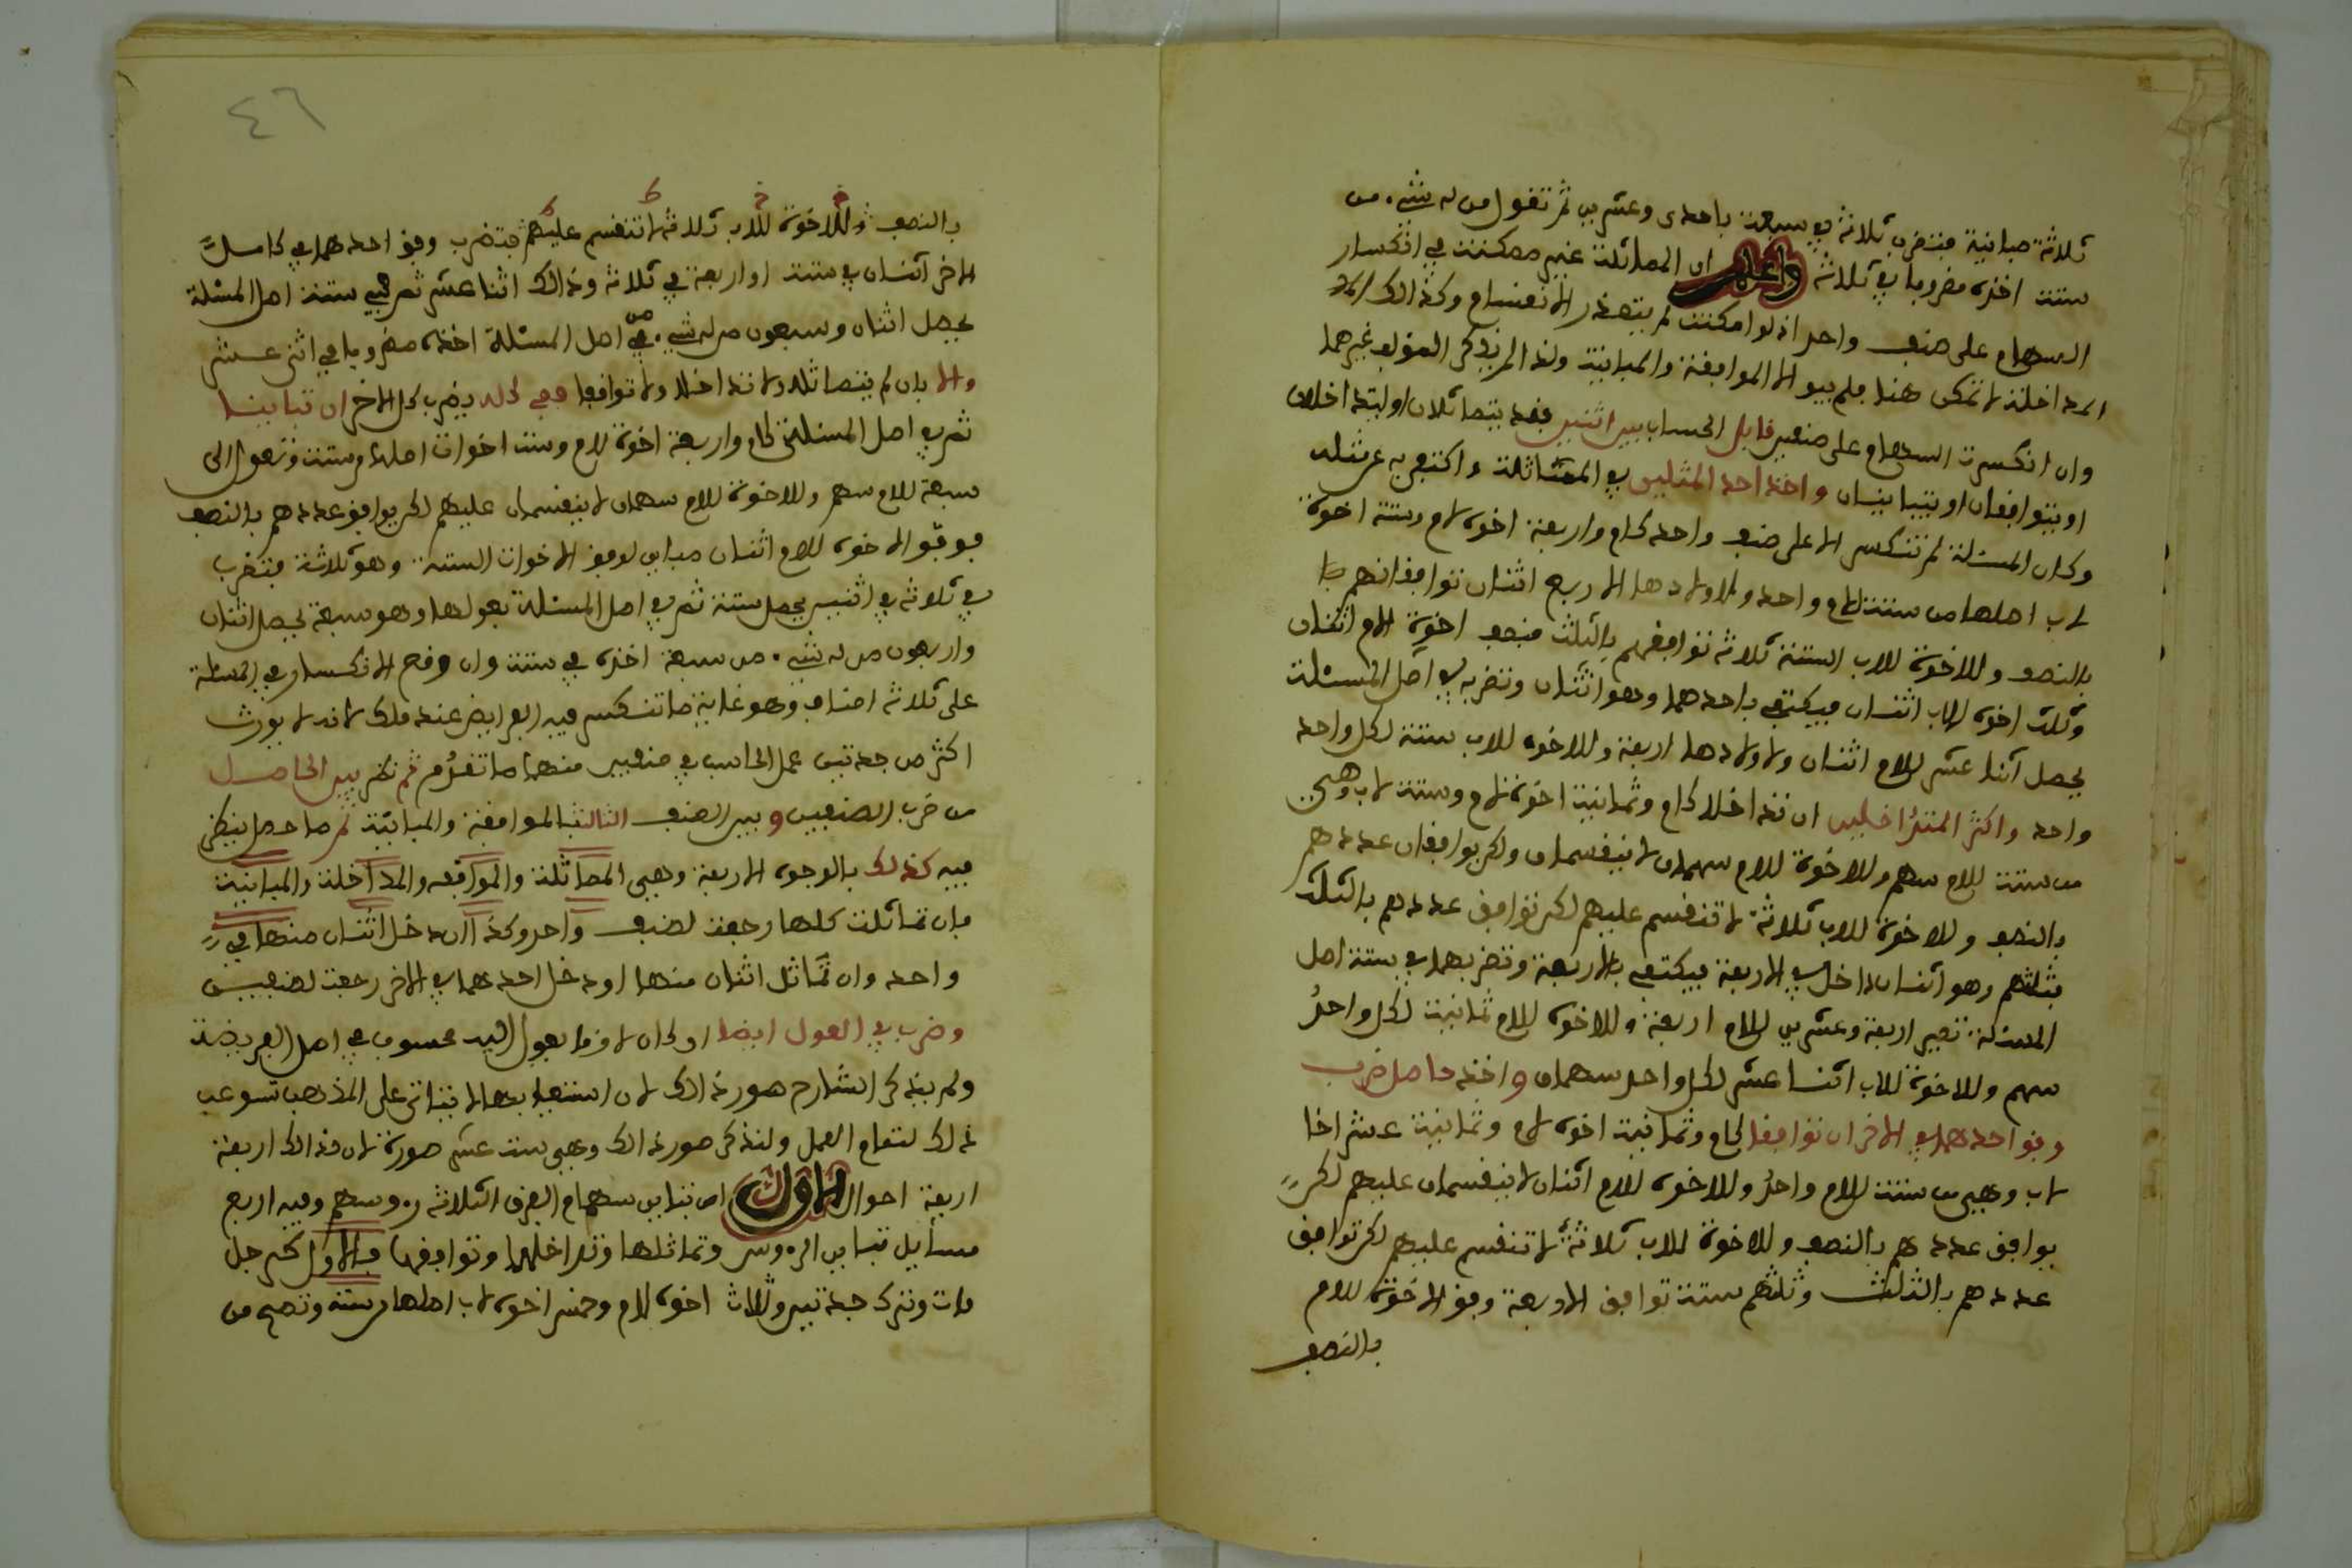 ثلاثة مباينة فتضرب ثلاثة في سبعة باحدى وعشرين ثم تقول من له شيء من
ستة اخذه مضروبا في ثلاثة واعلم ان المماثلة غير ممكنة في انكسار
السهام على صنف واحد اذ لو امكنت لم يتعذر الانقسام وكذالك
المداخلة لا تمكن هنا فلم يبق الا الموافقة والمباينة ولذا لم يذكر المؤلف غيرهما
وان انكسرت السهام على صنفين قابل الحساب بين اثنين فقد يتماثلان او يتداخلان
او يتوافقان او يتباينان واخذ احد المثلين في المماثلة واكتفى به عن مثله
وكان المسئلة لم تنكسر الا على صنف واحد كام واربعة اخوة لام وستة اخوة
لاب اصلها من ستة للام واحد ولاولادها الاربع اثنان توافقانهم
بالنصف وللاخوة للاب الستة ثلاثة توافقهم بالثلث فنصف اخوة الام اثنان
وثلث اخوة الاب اثنان فيكتفى باحدهما وهو اثنان وتضربه في اصل المسئلة
يحصل اثنا عشر للام اثنان ولاولادها اربعة وللاخوة للاب ستة لكل واحد
واحد واكثر المتداخلين ان تداخلا كام وثمانية اخوة لام وستة لاب وهي
من ستة للام سهم وللاخوة للام سهمان لا ينقسمان ولكن يوافقان عددهم
بالنصف وللاخوة للاب ثلاثة لا تنقسم عليهم لكن توافق عددهم بالثلث
فثلثهم وهو اثنان داخل في الاربعة فيكتفى بالاربعة وتضربها في ستة اصل
المسئلة تصير اربعة وعشرين للام اربعة وللاخوة للام ثمانية لكل واحد
سهم وللاخوة للاب اثنا عشر لكل واحد سهمان واخذ حاصل ضرب
وفق احدهما في الاخر ان توافقا كام وثمانية اخوة لام وثمانية عشر اخا
لاب وهي من ستة للام واحد وللاخوة للام اثنان لا ينقسمان عليهم لكن
يوافق عددهم بالنصف وللاخوة للاب ثلاثة لا تنقسم عليهم لكن توافق
عددهم بالثلث وثلثهم ستة توافق الاربعة وفق الاخوة للام
بالنصف
٤٦
بالنصف وللاخوة للاب ثلاثة لا تنقسم عليهم فتضرب وفق احدهما في كامل
الاخر اثنان في ستة او اربعة في ثلاثة وذالك اثنا عشر ثم هي في ستة اصل المسئلة
يحصل اثنان وسبعون من له شيء من اصل المسئلة اخذه مضروبا في اثني عشر
والا بان لم يتماثلا ولا تداخلا ولا توافقا ففي كله يضرب كل الاخر ان تباينا
ثم في اصل المسئلة كام واربعة اخوة لام وست اخوات اصلها من ستة وتعول الى
سبعة للام سهم وللاخوة للام سهمان لا ينقسمان عليهم لكن يوافق عددهم بالنصف
فوفق الاخوة للام اثنان مباين لوفق الاخوات الستة وهو ثلاثة فتضرب
في ثلاثة في اثنين يحصل ستة ثم في اصل المسئلة بعولها وهو سبعة يحصل اثنان
واربعون من له شيء من سبعة اخذه في ستة وان وقع الانكسار في المسئلة
على ثلاثة اصناف وهو غاية ما تنكسر فيه الفرايض عند ملك لانه لا يورث
اكثر من جدتين عمل الحاسب في صنفين منهما ما تقدم ثم نظر بين الحاصل
من ضرب الصنفين وبين الصنف الثالث بالموافقة والمباينة ثم ما حصل ينظر
فيه كذلك بالوجوه الاربعة وهي المماثلة والموافقه والمداخلة والمباينة
فان تماثلت كلها رجعت لصنف واحد وكذا ان دخل اثنان منها في
واحد وان تماثل اثنان منها او دخل احدهما في الاخر رجعت لصنفين
وضرب في العول ايضا او كان لان ما يعول اليه محسوب في اصل الفريضة
ولم يذكر الشارح صور ذالك لان استيعابها لا يتاتى على المذهب تسوعب
ذلك لتمام العمل ولنذكر صور ذالك وهي ست عشر صورة لان ذالك اربعة
اربعة احوال الاول ان تباين سهام الفرق الثلاثة رءوسهم وفيه اربع
مسايل تباين الرءوس وتماثلها وتداخلها وتوافقها فالاول كرجل
مات وترك جدتين وثلاث اخوة لام وخمس اخوة لاب اصلها من ستة وتصح من